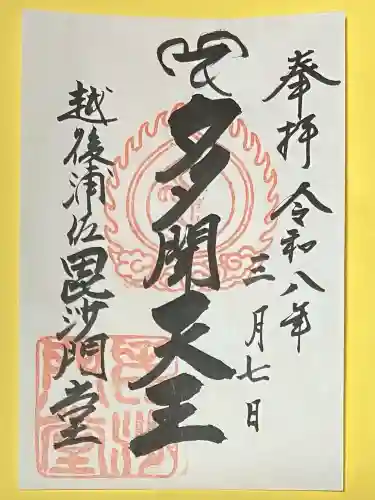 奉拝 令和八年
三月七日
多聞天王
越後浦佐毘沙門堂